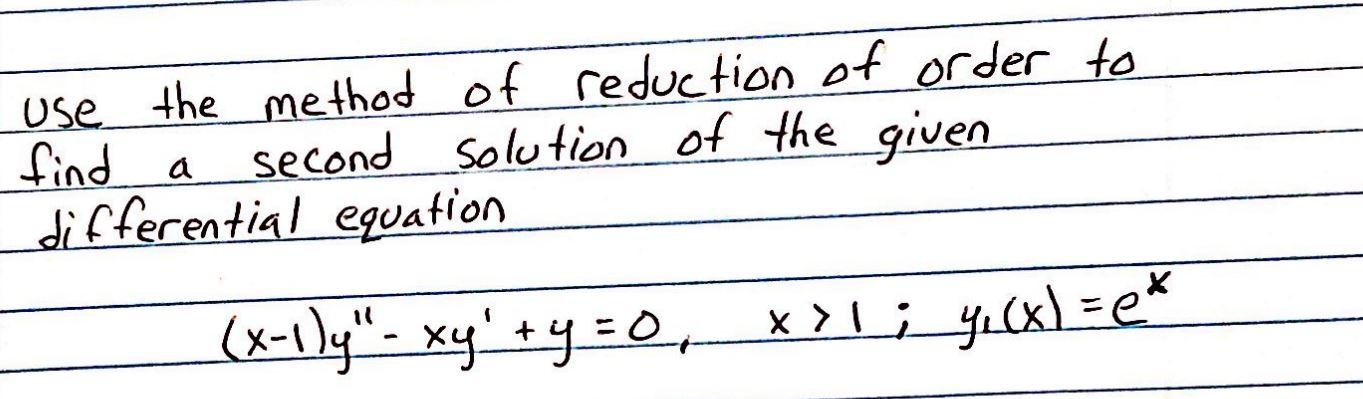 use the method of reduction of order to
find a second solution of the given
differential equation
(x-1)y'' - xy' + y = 0, x > 1 ; y₁(x) = eˣ